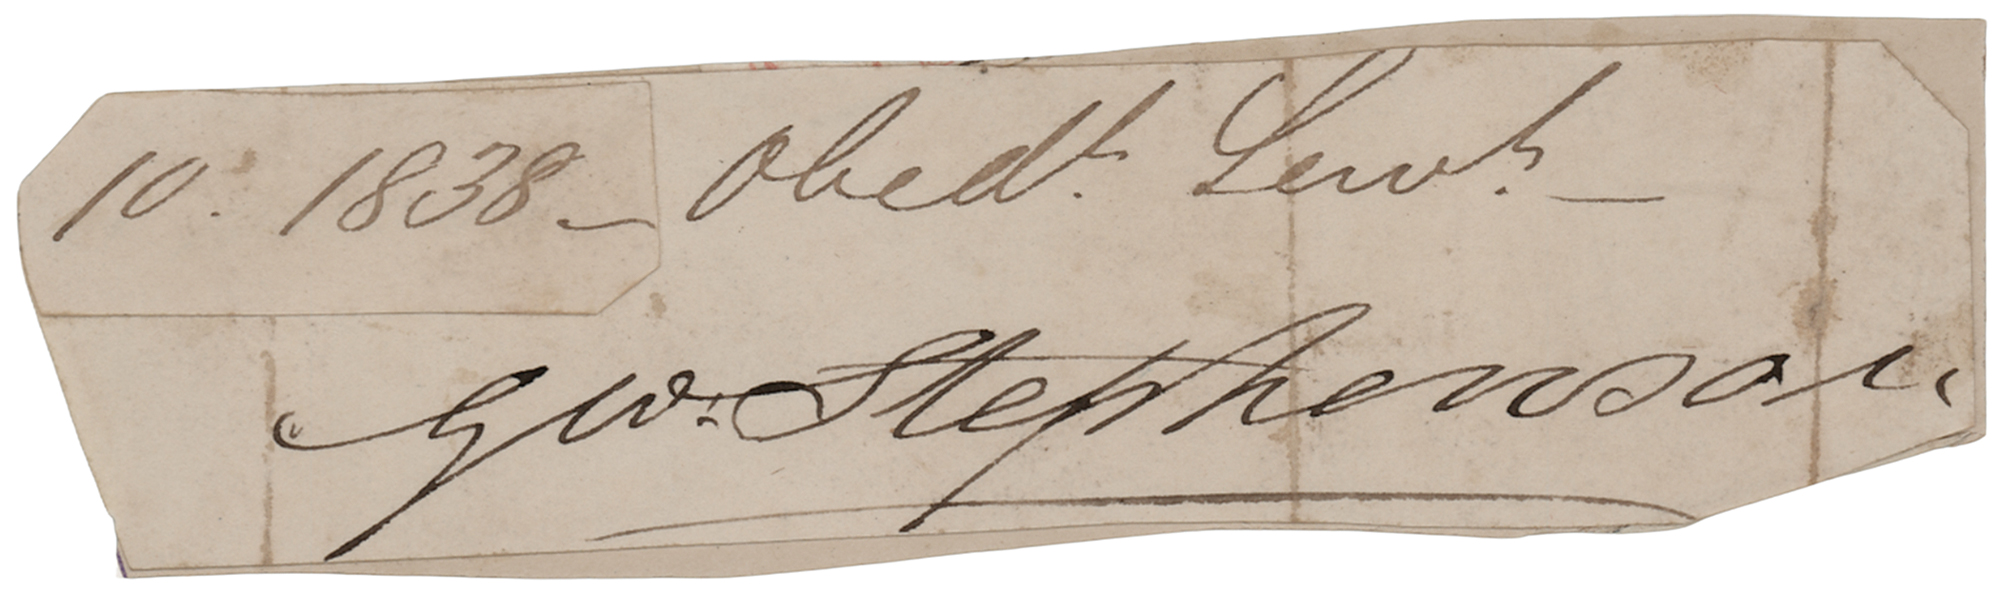 10. 1838—
Obedt. Servt.—
Gw: Stephenson.